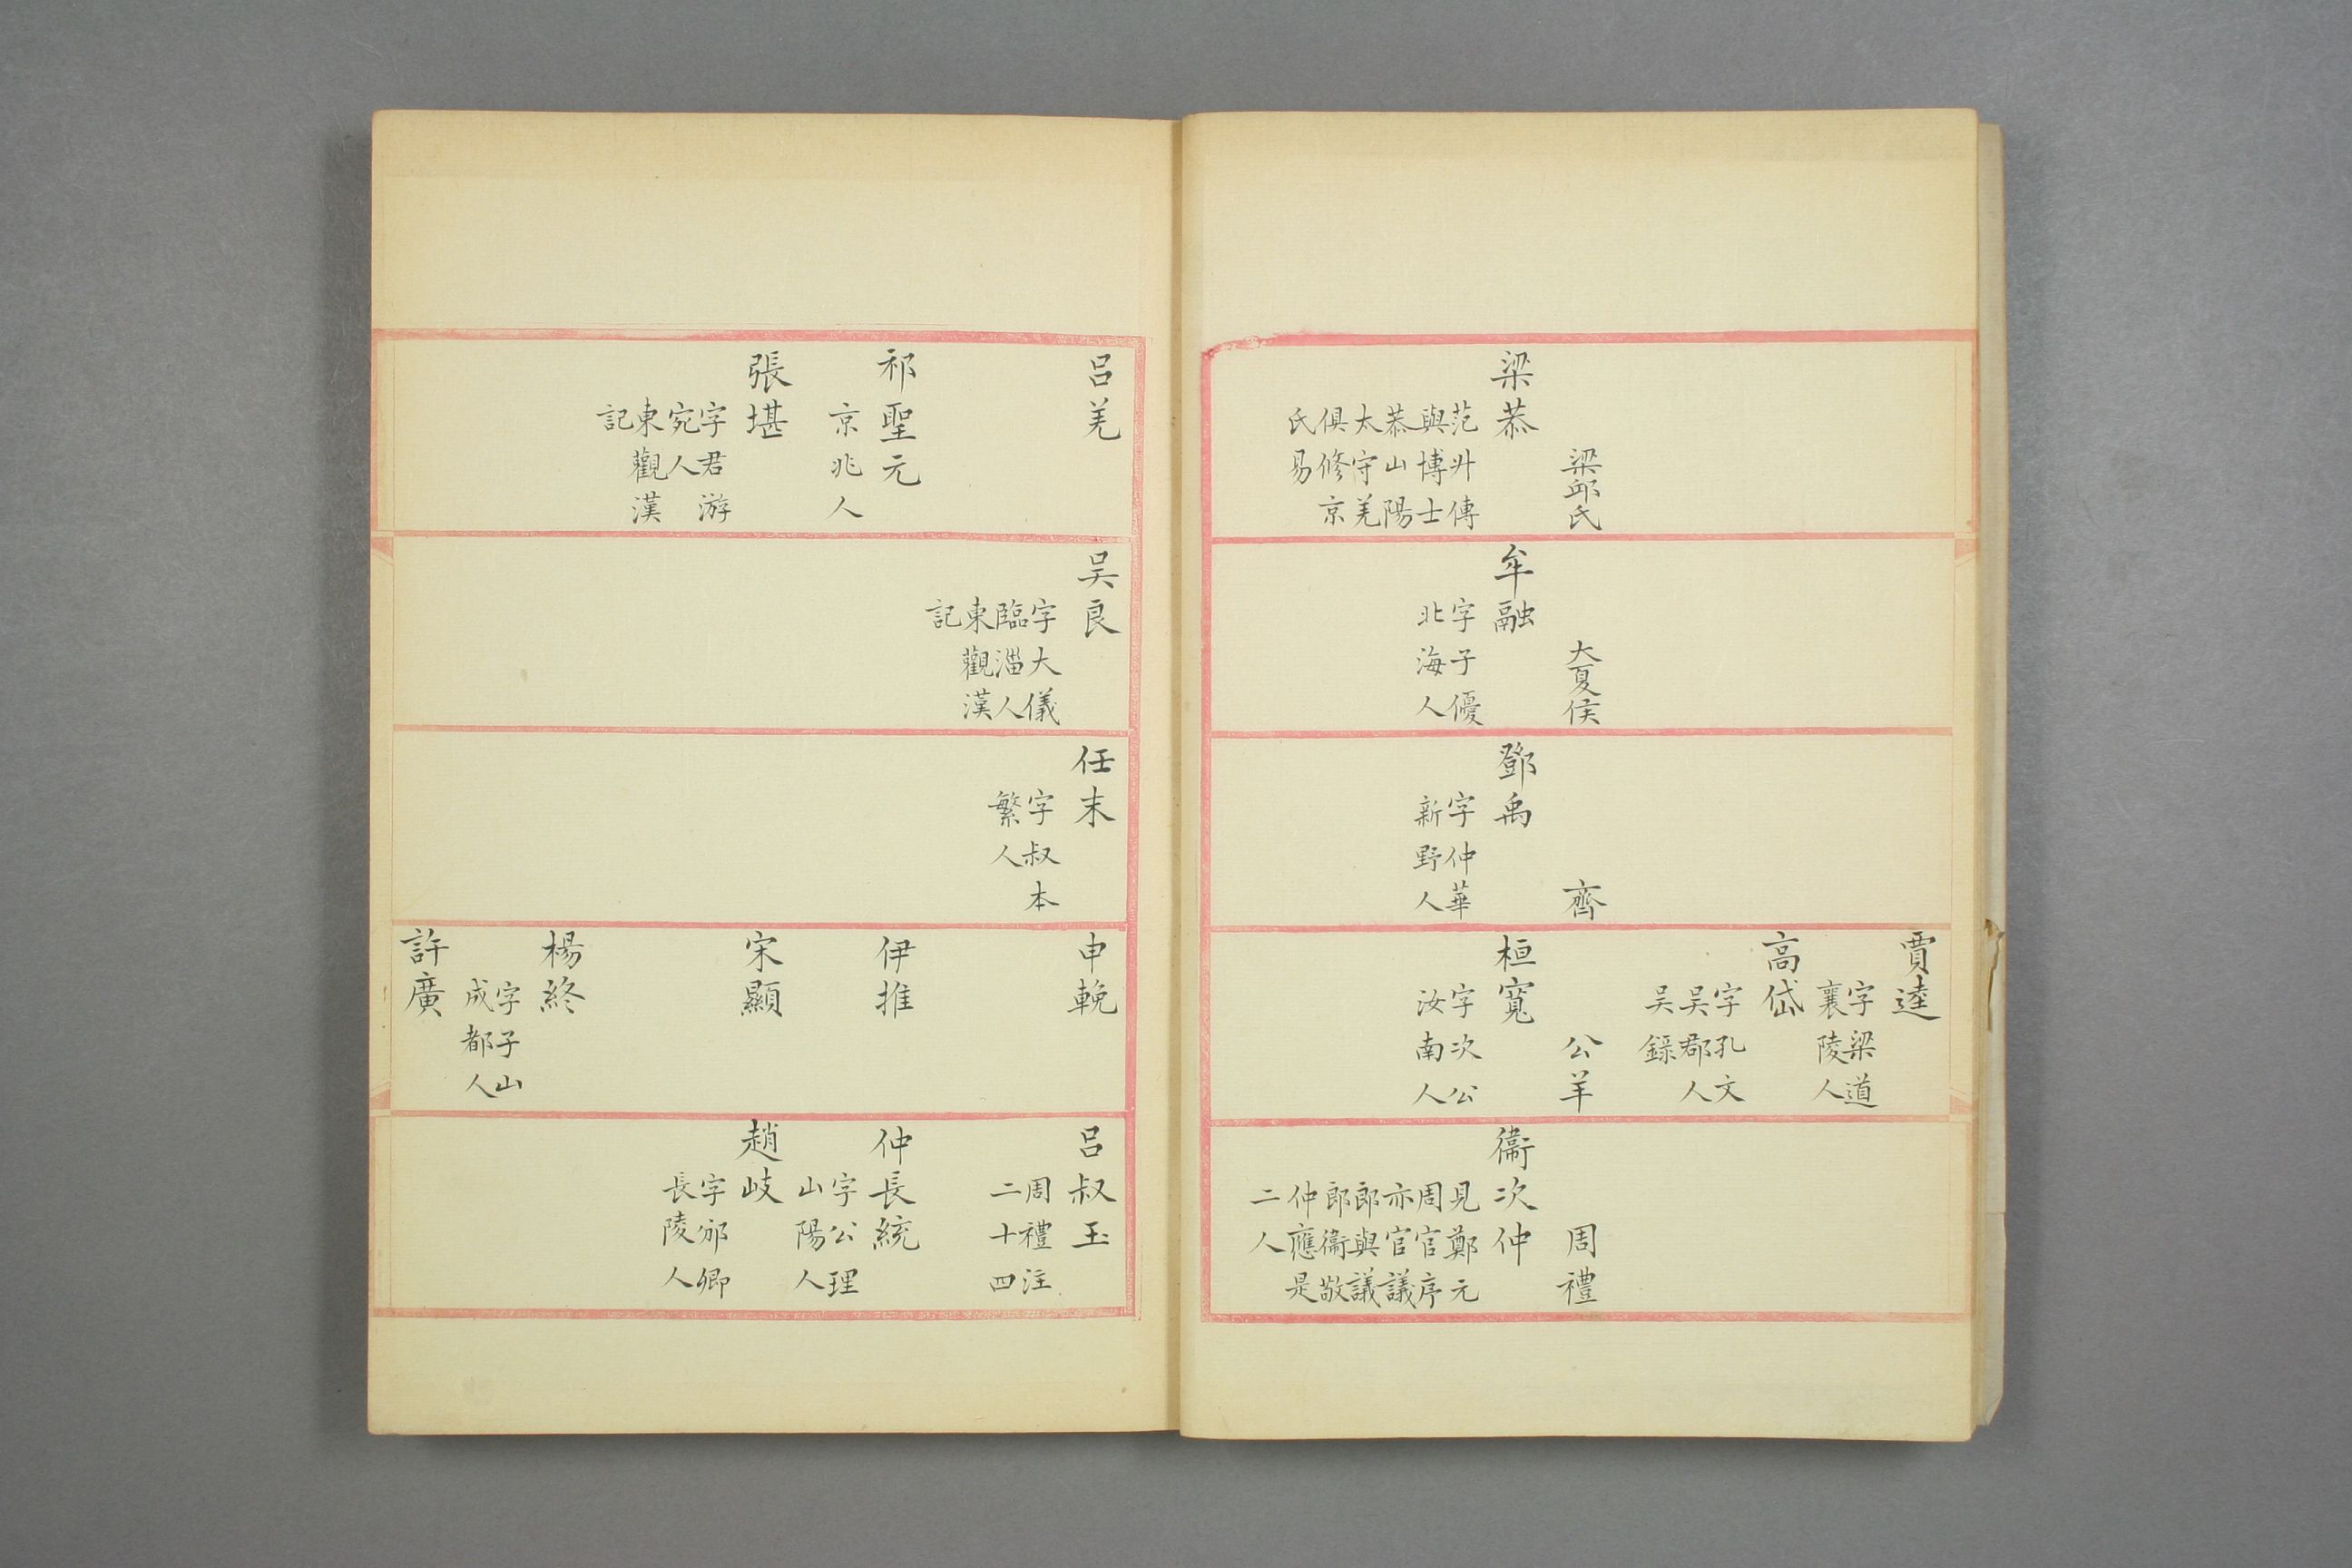 梁邱氏
梁恭
范升傳
與博士
恭山陽
太守羌
俱修京
氏易
大夏侯
牟融
字子優
北海人
齊
鄧禹
字仲華
新野人
賈逵
字梁道
襄陵人
高岱
字孔文
吴郡人
吴錄
公羊
桓寬
字次公
汝南人
周禮
衞次仲
見鄭元
周官序
亦官議
郎與議
郎衞敬
仲應是
二人
吕羌
祁聖元
京兆人
張堪
字君游
宛人
東觀漢
記
吴良
字大儀
臨淄人
東觀漢
記
任末
字叔本
繁人
申輓
伊推
宋顯
楊終
字子山
成都人
許廣
吕叔玉
周禮注
二十四
仲長統
字公理
山陽人
趙岐
字邠卿
長陵人